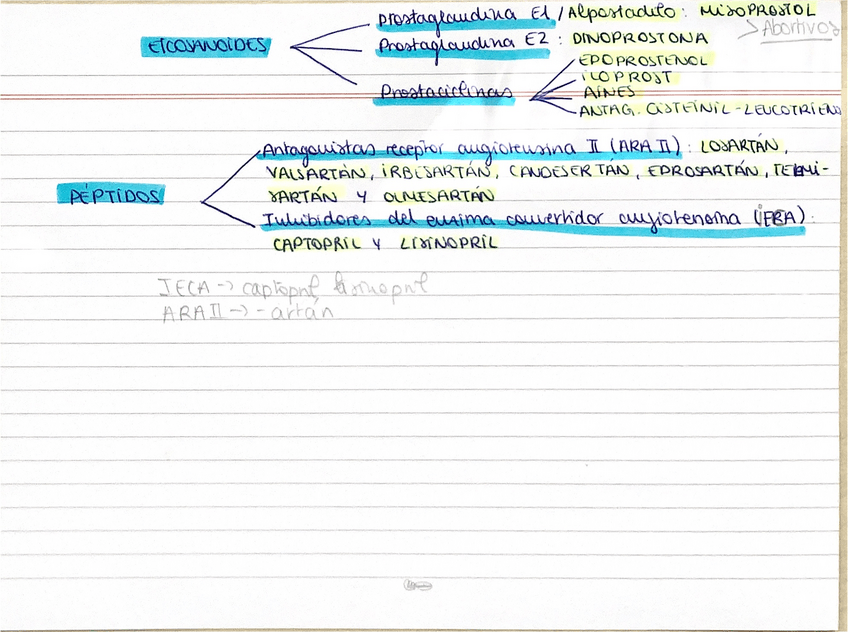 Prostaglandina E1 / Alpostadilo: MISOPROSTOL
> Abortivos
EICOSANOIDES
Prostaglandina E2: DINOPROSTONA
Prostaciclinas
EPOPROSTENOL
ILOPROST
AINES
ANTAG. CISTEINIL-LEUCOTRIENO
PÉPTIDOS
Antagonistas receptor angiotensina II (ARA II): LOSARTÁN,
VALSARTÁN, IRBESARTÁN, CANDESERTÁN, EPROSARTÁN, TELMI-
SARTÁN Y OLMESARTÁN
Inhibidores del ensima convertidor angiotenoina :
CAPTOPRIL Y LISINOPRIL
IECA -> captopril lisinopril
ARA II -> -artán